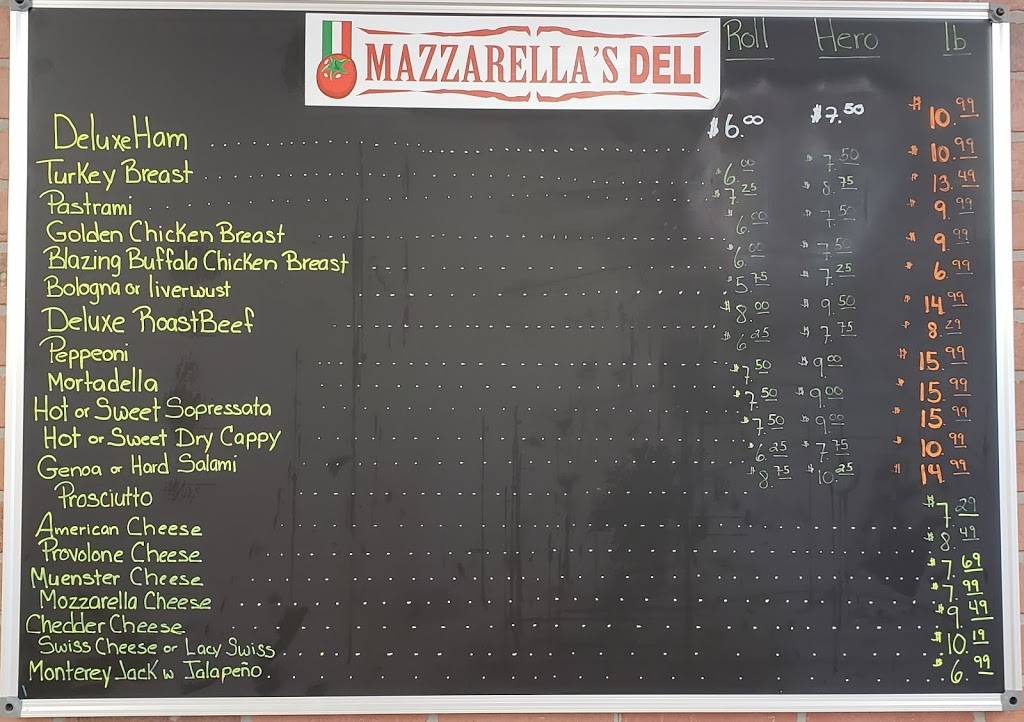 MAZZARELLA'S DELI
Roll Hero lb
Deluxe Ham $6.00 $7.50 $10.99
Turkey Breast $6.00 $7.50 $10.99
Pastrami $7.25 $8.75 $13.49
Golden Chicken Breast $6.00 $7.50 $9.99
Blazing Buffalo Chicken Breast $6.00 $7.50 $9.99
Bologna or liverwust $5.75 $7.25 $6.99
Deluxe Roast Beef $8.00 $9.50 $14.99
Peppeoni $6.25 $7.75 $8.29
Mortadella $7.50 $9.00 $15.99
Hot or Sweet Sopressata $7.50 $9.00 $15.99
Hot or Sweet Dry Cappy $7.50 $9.00 $15.99
Genoa or Hard Salami $6.25 $7.75 $10.99
Prosciutto $8.75 $10.25 $14.99
American Cheese $7.29
Provolone Cheese $8.49
Muenster Cheese $7.69
Mozzarella Cheese $7.99
Chedder Cheese $9.49
Swiss Cheese or Lacy Swiss $10.19
Monterey Jack w Jalapeño $6.99